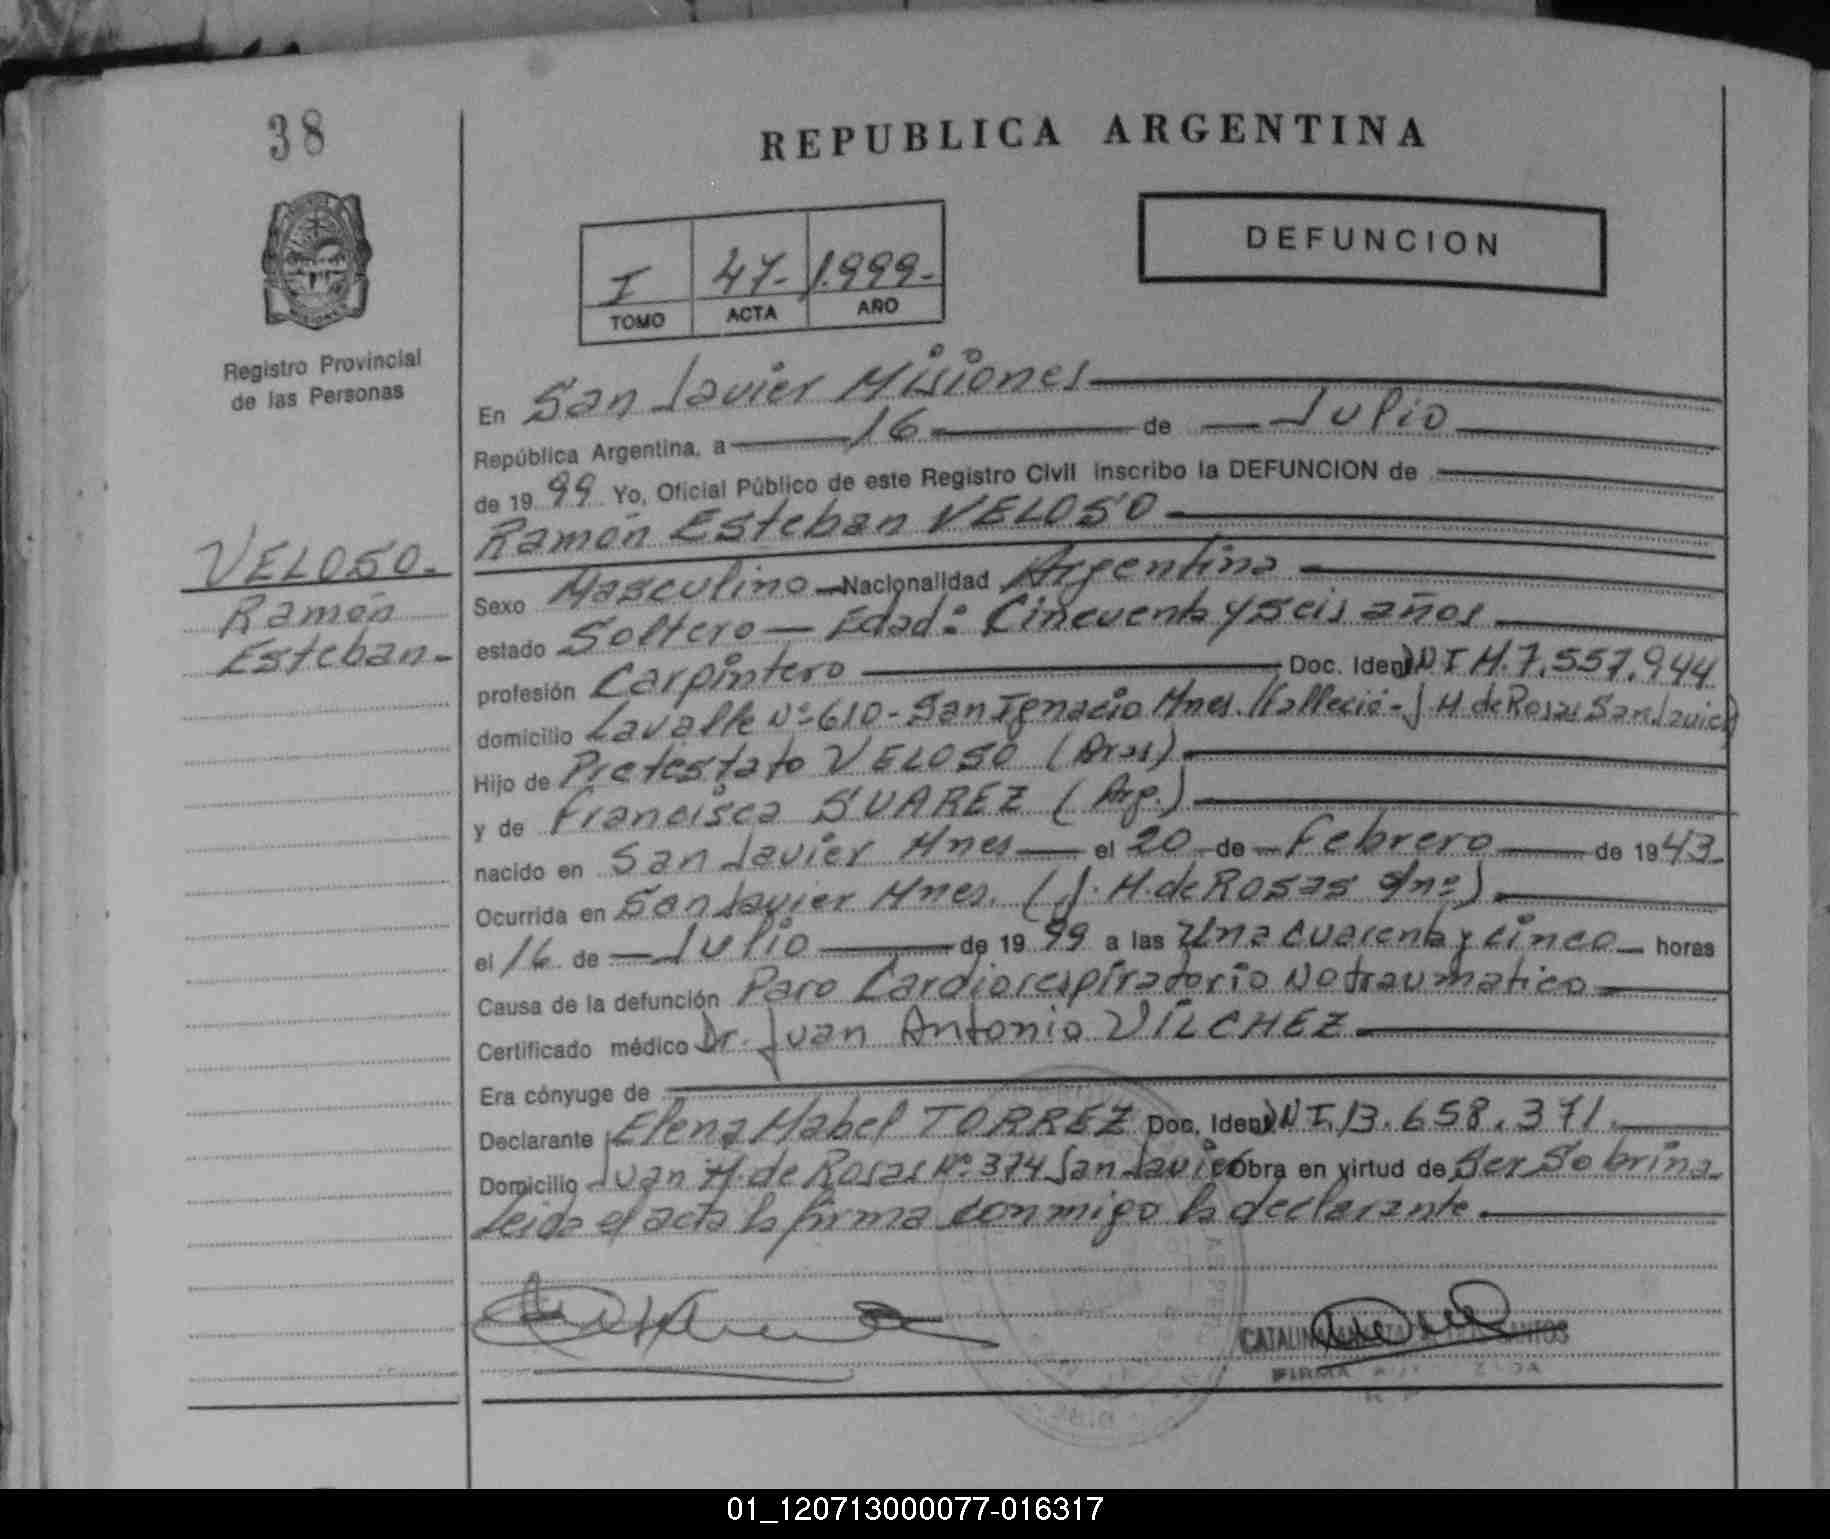 38
REPUBLICA ARGENTINA
DEFUNCION
I 47- 1.999-
TOMO ACTA AÑO
Registro Provincial
de las Personas
En San Javier Misiones
República Argentina, a 16 de Julio
de 19 99 Yo, Oficial Público de este Registro Civil inscribo la DEFUNCION de
Ramón Esteban VELOSO
VELOSO.
Ramón
Esteban-
Sexo Masculino Nacionalidad Argentina
estado Soltero - Edad: Cincuenta y seis años
profesión Carpintero Doc. Ident DNI M. 7.557.944
domicilio Lavalle Nº 610 - San Ignacio Mnes. (Falleció - J. M. de Rosas San Javier)
Hijo de Pretestato VELOSO (Bras)
y de Francisca SUAREZ (Arg.)
nacido en San Javier Mnes el 20 de Febrero de 1943.
Ocurrida en San Javier Mnes. (J. M. de ROSAS s/nº)
el 16 de Julio de 19 99 a las Una cuarenta y cinco horas
Causa de la defunción Paro Cardiorespiratorio No traumatico
Certificado médico Dr. Juan Antonio VILCHEZ
Era cónyuge de
Declarante Elena Mabel TORREZ Doc. Ident DNI. 13.658.371.
Domicilio Juan M. de Rosas Nº 374 San Javier Obra en virtud de Ser Sobrina.
Leida el acta la firma conmigo la declarante.
FIRMA
01_120713000077-016317